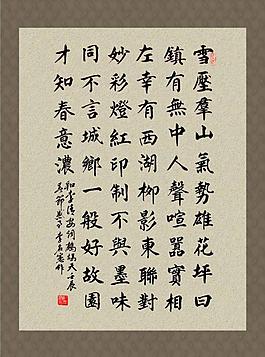 雪壓羣山氣勢雄花坪曰
鎮有無中人聲喧囂實相
左幸有西湖柳影東聯對
妙彩燈紅印制不與墨味
同不言城鄉一般好故園
才知春意濃
和李清安詞鷓鴣天壬辰